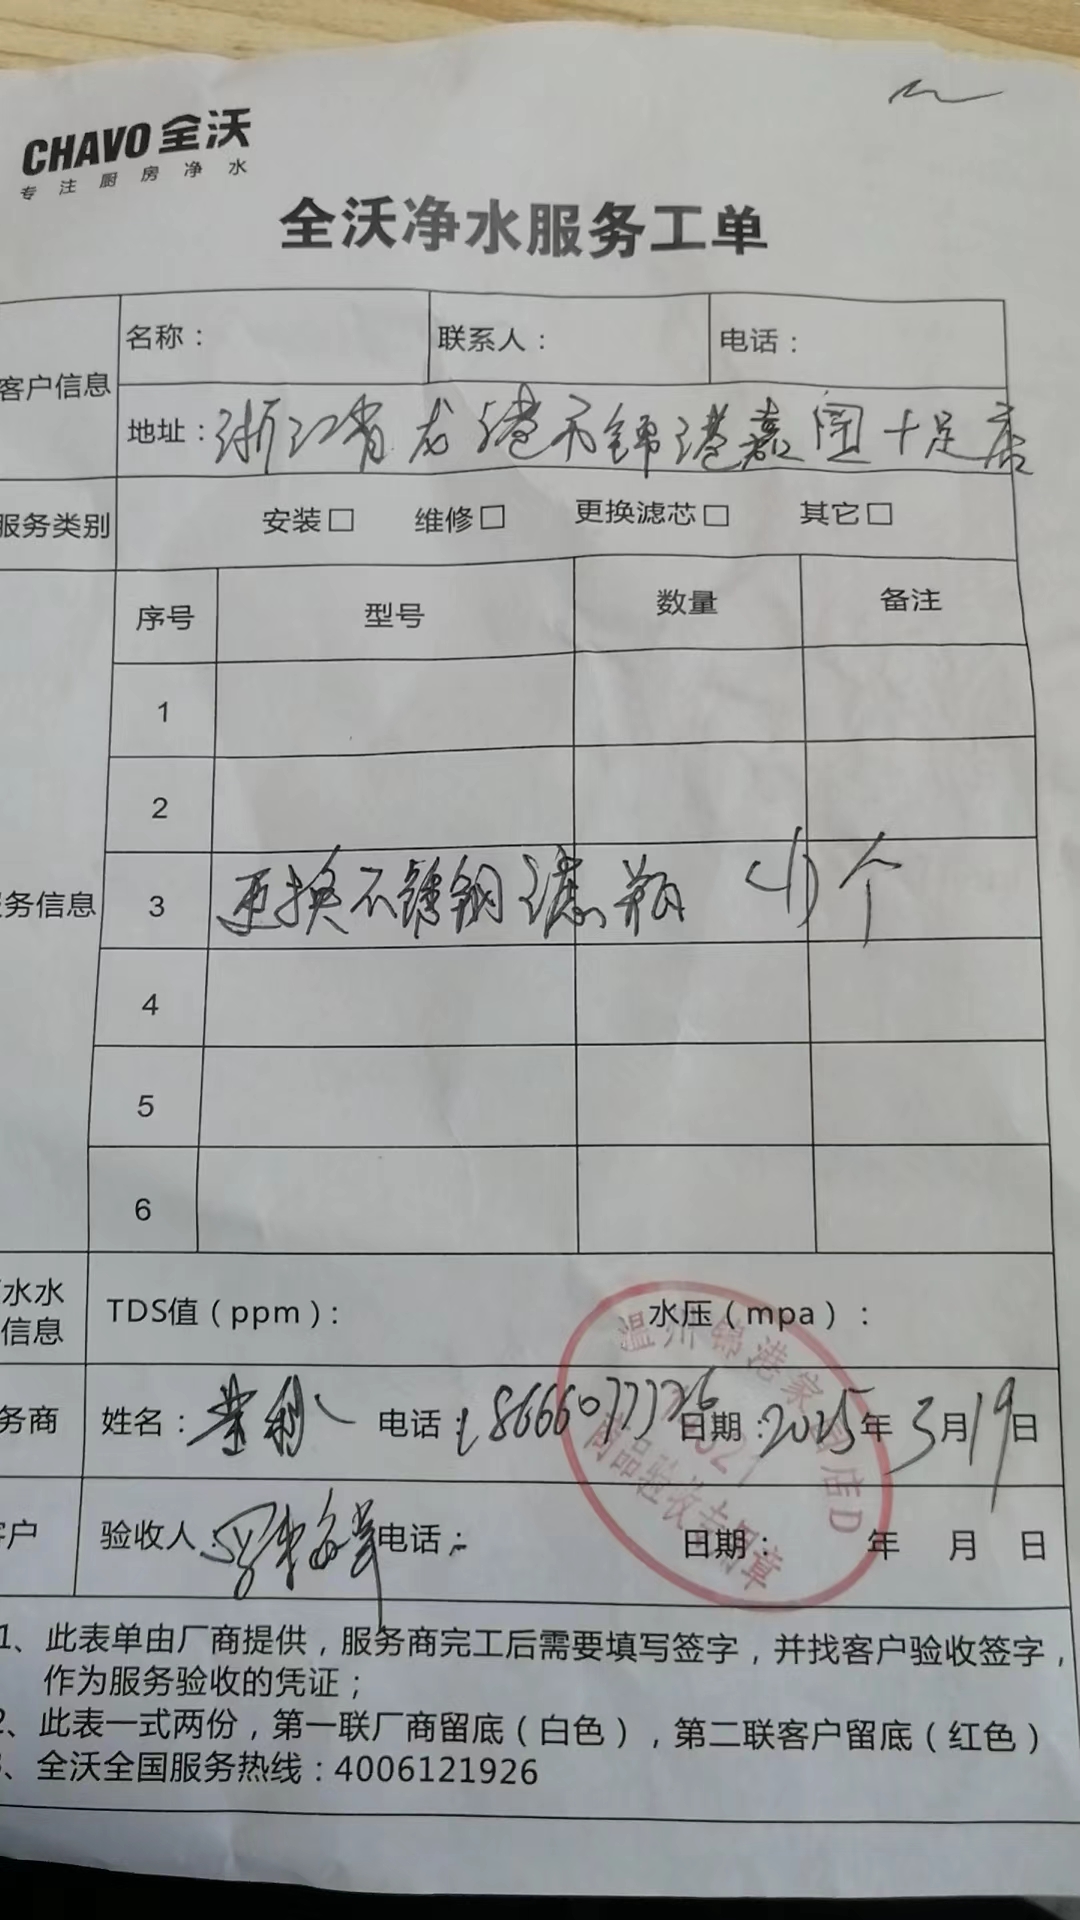 CHAVO 全沃
专注厨房净水
全沃净水服务工单
客户信息 名称： 联系人： 电话：
地址：浙江省龙港市锦港嘉园十足店
服务类别 安装□ 维修□ 更换滤芯□ 其它□
序号 型号 数量 备注
1
2
务信息 3 更换不锈钢滤瓶 (1)个
4
5
6
水水
信息
TDS值（ppm）： 水压（mpa）：
务商 姓名： 电话：18666077726 日期：2025年3月19日
户 验收人： 电话： 日期： 年 月 日
温州锦港家 店D
商品验收专用章
1、此表单由厂商提供，服务商完工后需要填写签字，并找客户验收签字，
作为服务验收的凭证；
2、此表一式两份，第一联厂商留底（白色），第二联客户留底（红色）
3、全沃全国服务热线：4006121926